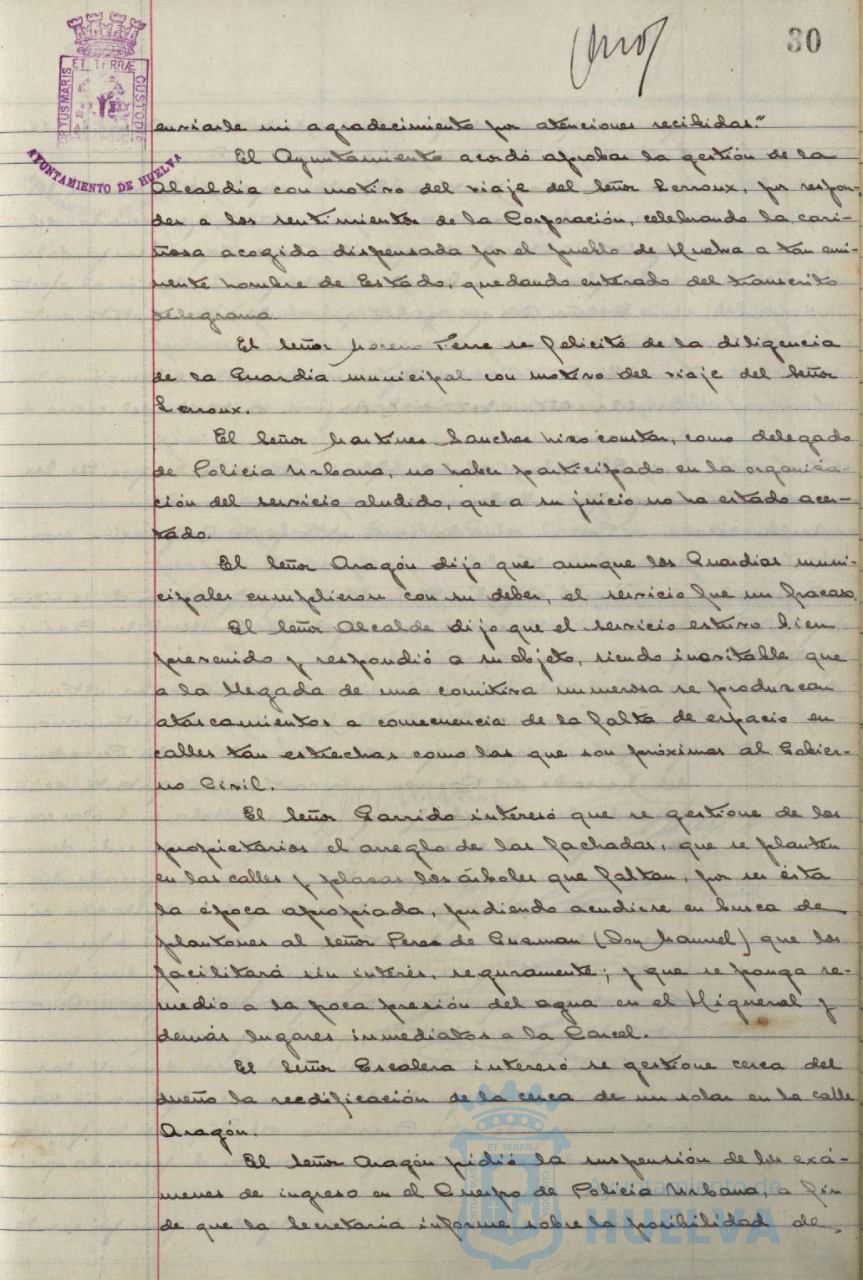 30
PORTUS MARIS
ET TERRÆ
CUSTODIA
AYUNTAMIENTO DE HUELVA
enviarle mi agradecimiento por atenciones recibidas."
El Ayuntamiento acordó aprobar la gestión de la
Alcaldía con motivo del viaje del Señor Lerroux, por respon-
der a los sentimientos de la Corporación, celebrando la cari-
ñosa acogida dispensada por el pueblo de Huelva a tan emi-
nente hombre de Estado, quedando enterado del transcrito
telegrama
El Señor Moreno Ferre se felicitó de la diligencia
de la Guardia municipal con motivo del viaje del Señor
Lerroux.
El Señor Martinez Sanchez hizo constar, como delegado
de Policia Urbana, no haber participado en la organiza-
ción del servicio aludido, que a su juicio no ha estado acer-
tado.
El Señor Aragón dijo que aunque los Guardias muni-
cipales cumplieron con su deber, el servicio fue un fracaso.
El Señor Alcalde dijo que el servicio estuvo bien
prevenido y respondió a su objeto, siendo inevitable que
a la llegada de una comitiva numerosa se produzcan
atascamientos a consecuencia de la falta de espacio en
calles tan estrechas como las que son próximas al Gobier-
no Civil.
El Señor Garrido interesó que se gestione de los
propietarios el arreglo de las fachadas, que se planten
en las calles y plazas los árboles que faltan, por ser ésta
la época apropiada, pudiendo acudirse en busca de
plantones al Señor Perez de Guzman (Don Manuel) que los
facilitará sin interés, seguramente; y que se ponga re-
medio a la poca presión del agua en el Higueral y
demás lugares inmediatos a la Carcel.
El Señor Escalera interesó se gestione cerca del
dueño la reedificación de la cerca de un solar en la calle
Aragón.
El Señor Aragón pidió la suspensión de los exá-
menes de ingreso en el Cuerpo de Policia Urbana, a fin
de que la Secretaria informe sobre la posibilidad de
Ayuntamiento de
HUELVA